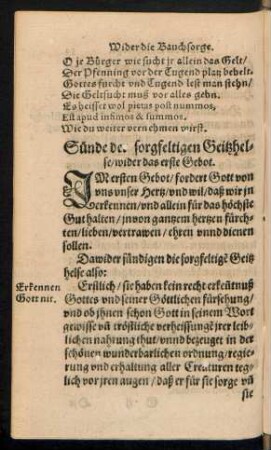 Wider die Bauchsorge.
O je Bürger wie sucht jr allein das Gelt/
Der Pfenning vor der Tugend platz behelt.
Gottes furcht vnd Tugend lest man stehn/
Die Geltsucht muß vor alles gehn.
Es heisset wol pietas post nummos,
Est apud infimos & summos.
Wie du weiter vernehmen wirst.
Sünde der sorgfeltigen Geitzhel-
se/wider das erste Gebot.
IM ersten Gebot/ fordert Gott von
vns vnser Hertz/ vnd wil/ daß wir jn
erkennen/ vnd allein für das höchste
Gut halten/ jn von gantzem hertzen fürch-
ten/lieben/vertrawen/ ehren vnnd dienen
sollen.
Dawider sündigen die sorgfeltigē Geitz
helse also:
Erkennen
Gott nit.
Erstlich/ sie haben kein recht erkētnuß
Gottes vnd seiner Göttlichen fürsehung/
vnd ob jhnen schon Gott in seinem Wort
gewisse vñ tröstliche verheissungē jrer leib-
lichen nahrung thut/ vnnd bezeuget in der
schönen wunderbarlichen ordnung/ regie-
rung vnd erhaltung aller Creaturen teg-
lich vor jren augen/ daß er für sie sorge vñ
sie